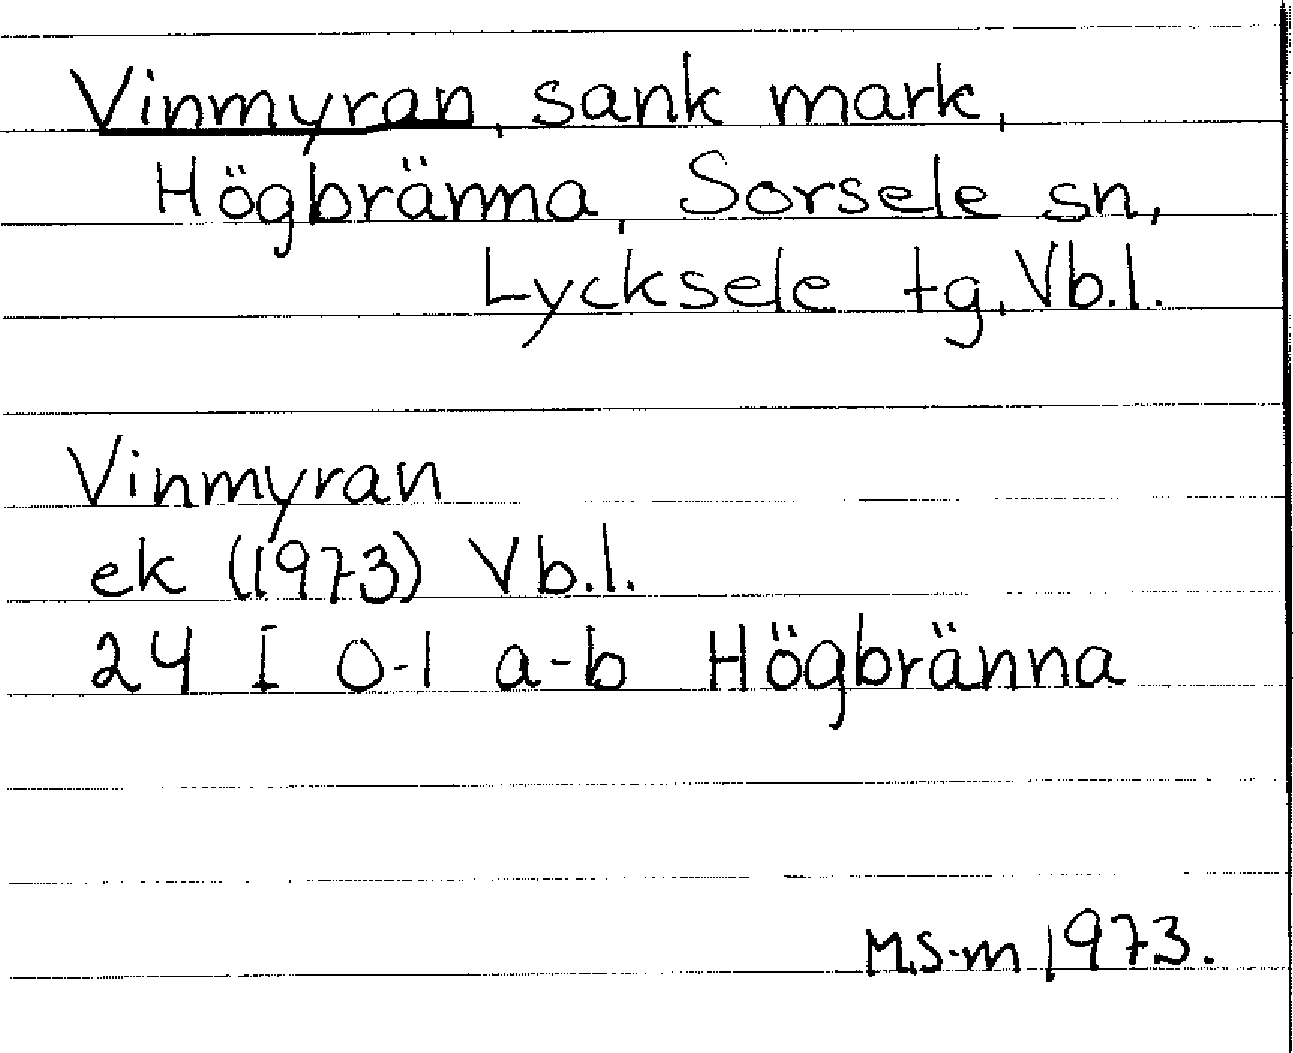 Vinmyran, sank mark,
Högbränna, Sorsele sn,
Lycksele tg, Vb.l.
Vinmyran
ek (1973) Vb.l.
24 I 0-1 a-b Högbränna
M.S-m 1973.